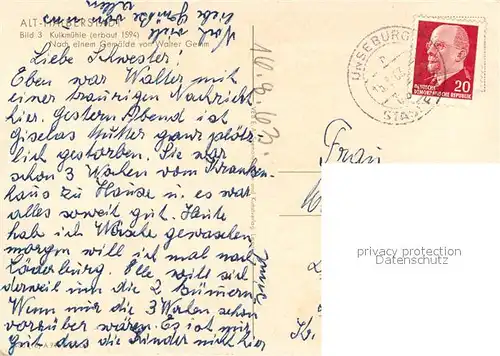 ALT-HALBERSTADT
Bild 3 Kulkmühle (erbaut 1594)
Nach einem Gemälde von Walter Gemm
Liebe Schwester!
Eben war Walter mit
einer traurigen Nachricht
hier. Gestern Abend ist
Giselas Mutter ganz plötz-
lich gestorben. Sie war
schon 3 Wochen vom Kranken-
haus zu Hause u. es war
alles soweit gut. Heute
habe ich Wäsche gewaschen,
morgen will ich mal nach
Löderburg. Elle will sich
derweil um die 2 kümmern.
Wenn mir die 3 Wochen schon
vorüber wären. Es ist mir
gut das die Kinder nicht hier
Noch viele
liebe Grüße
10.8.63.
UNSEBURG
STASSF
20
DEUTSCHE
DEMOKRATISCHE REPUBLIK
Frau
privacy protection
Datenschutz
Kr.